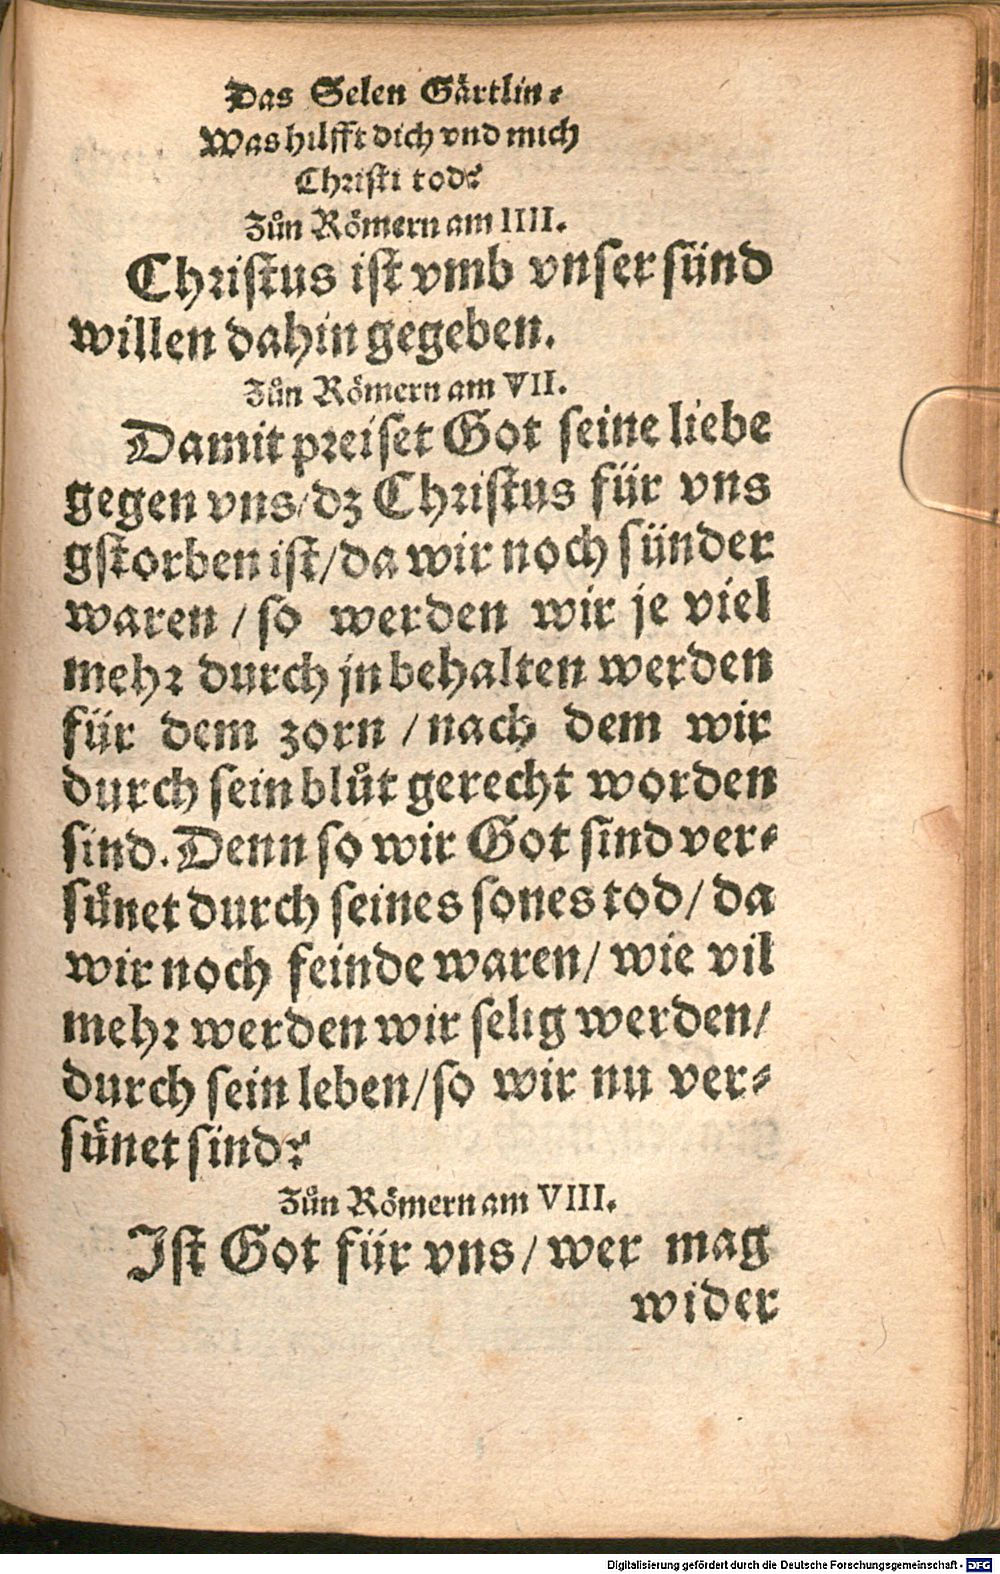 Das Selen Gärtlin⸗
Was hilfft dich vnd mich
Christi tod?
Zůn Römern am IIII.
Christus ist vmb vnser sünd
willen dahin gegeben.
Zůn Römern am VII.
Damit preiset Got seine liebe
gegen vns/dz Christus für vns
gstorben ist/da wir noch sünder
waren/so werden wir je viel
mehr durch jn behalten werden
für dem zorn/nach dem wir
durch sein blůt gerecht worden
sind. Denn so wir Got sind ver⸗
sünet durch seines sones tod/da
wir noch feinde waren/wie vil
mehr werden wir selig werden/
durch sein leben/so wir nu ver⸗
sünet sind?
Zůn Römern am VIII.
Ist Got für vns/wer mag
wider
Digitalisierung gefördert durch die Deutsche Forschungsgemeinschaft - DFG